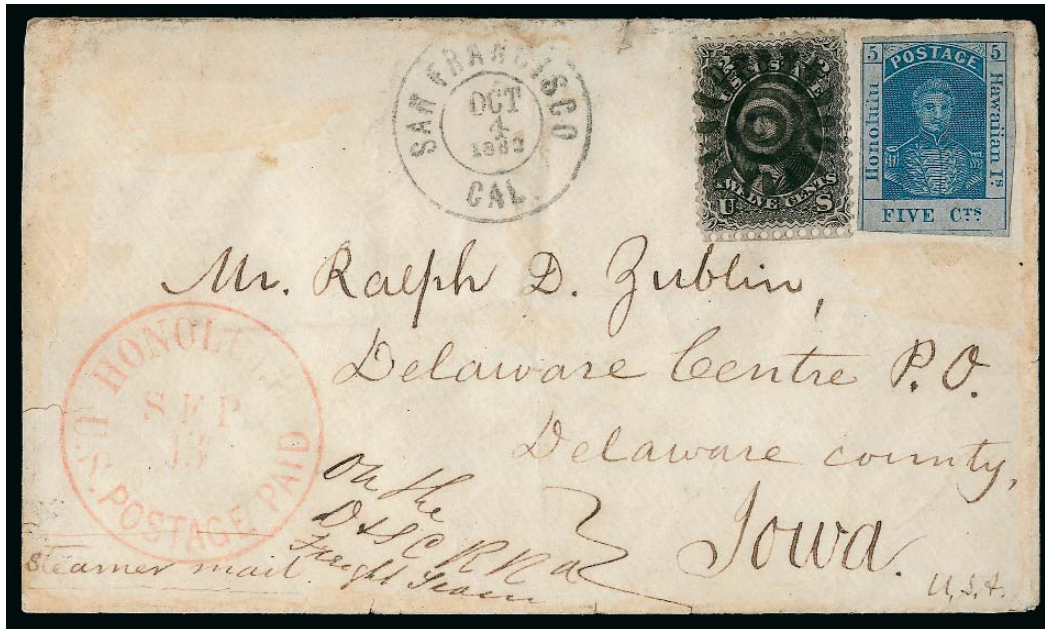 SAN FRANCISCO
OCT
4
1862
CAL.
U POSTAGE
TWELVE CENTS
U S
5 POSTAGE 5
Honolulu
Hawaiian Is.
FIVE CTS
Mr. Ralph D. Zublin,
Delaware Centre P.O.
Delaware county,
Iowa.
U.S.A.
HONOLULU
SEP
13
U.S. POSTAGE PAID
On the
D & S C R R a
Freight Train
Steamer mail